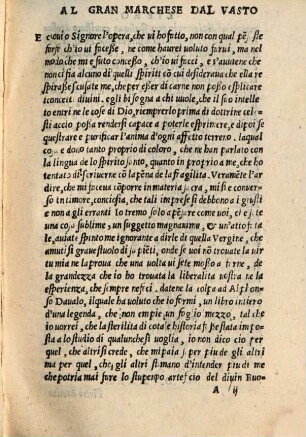 AL GRAN MARCHESE DAL VASTO
Eccoui o Signore l'opera, che ui ho fatto, non con qual pēsie
forse ch'io ui facesse, ne come haurei uoluto farui, ma nel
modo che mi è suto concesso, ch'io ui facci, e s'auuiene che
non ci sia alcuno di quelli spiriti cō cui desideraua che ella re
spirasse, scusate me, che per esser di carne non posso esplicare
i concetti diuini. egli bisogna a chi uuole, che il suo intelle
to entri ne le cose di Dio, riempierlo prima di dottrine cele
sti accio possa rendersi capace a poterle esprimere, e dipoi se
questrare e purificar l'anima d'ogni affetto terreno. laqual
cosa e dono tanto proprio di coloro, che ne han parlato con
la lingua de lo spirito santo, quanto in proprio a me, che ho
tentato discriuerne cō la pēna de la fragilita. Veramēte l'ar
dire, che mi faceua cōporre in materia sacra, mi si e conuer
so in timore, conciosia, che tali imprese si debbono a i giusti
e non a gli erranti Io tremo solo a pensare come uoi, che sete
cosa sublime, un suggetto magnanimo, e un'atto fata
le, auiate spinto me ignorante a dirle di quella Vergine, che
amutisi graue stuolo di sapiēti, onde se uoi nō trouate la uir
tu mia ne la proua che una uolta ui sete mosso a farne, de
la grandezza che io ho trouata la liberalita uostra ne la
esperienza, che sempre ne feci. datene la colpa ad Alphon
so Daualo, ilquale ha uoluto che io formi, un libro intiero
d'una legenda, che non empie un foglio mezzo, tal che
io uorrei, che la sterilita di cotale historia fusse stata impo
sta a lo studio di qualunchesi uoglia, non dico cio per
quel, che altri si crede, che mi paia per piu de gli altri
ma per quel, che gli altri si mano d'intender piu di me
che potria mai fare lo stupendo artefcio del diuin Buo-
A ij